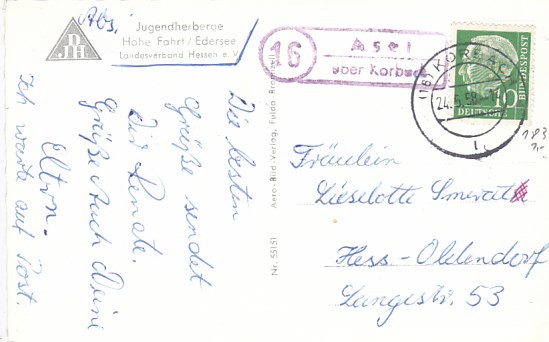 Abs.
Jugendherberge
Hohe Fahrt / Edersee
Landesverband Hessen e. V.
DJH
16
Asel
über Korbach
KORBACH
24.5.58
10
DEUTSCHE
BUNDESPOST
183
Die besten
Grüße sendet
dir Renate.
Grüße auch Deine
Eltern.
Ich warte auf Post.
Nr. 55151
Aero-Bild-Verlag, Fulda
Fräulein
Lieselotte
Hess-Oldendorf
Langestr. 53